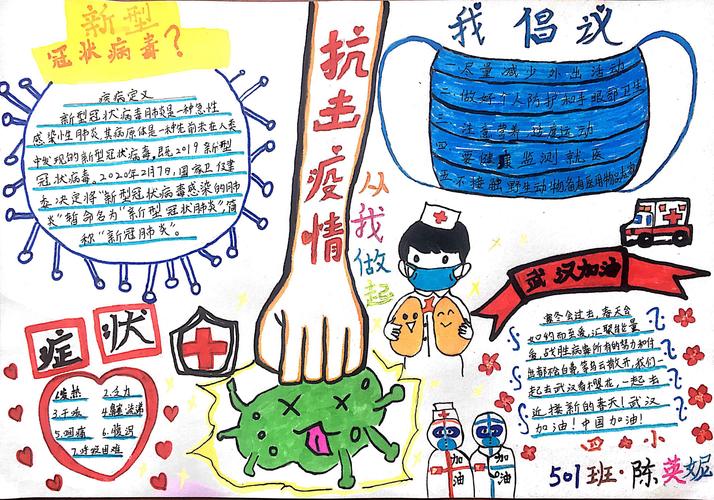 新型
冠状病毒?
疾病定义
新型冠状病毒肺炎是一种急性
感染性肺炎,其病原体是一种先前未在人类
中发现的新型冠状病毒,既2019新型
冠状病毒。2020年2月7日,国家卫健
委决定将“新型冠状病毒感染的肺
炎”暂命名为“新型冠状肺炎”,简
称“新冠肺炎”。
抗击疫情
从我做起
我倡议
一 尽量减少外出活动
二 做好个人防护和手眼部卫生
三 注意营养 适度运动
四 要健康 监测就医
五 不接触野生动物
武汉加油
寒冬会过去,春天会
如约而至 汇聚能量
爱,战胜病毒
我们一
起去武汉看樱花,一起去
迎接新的春天!武汉
加油!中国加油!
四小
501班·陈英妮
症状
1.发热
2.乏力
3.干咳
4.鼻塞流涕
5.咽痛
6.腹泻
7.呼吸困难
加油
加油